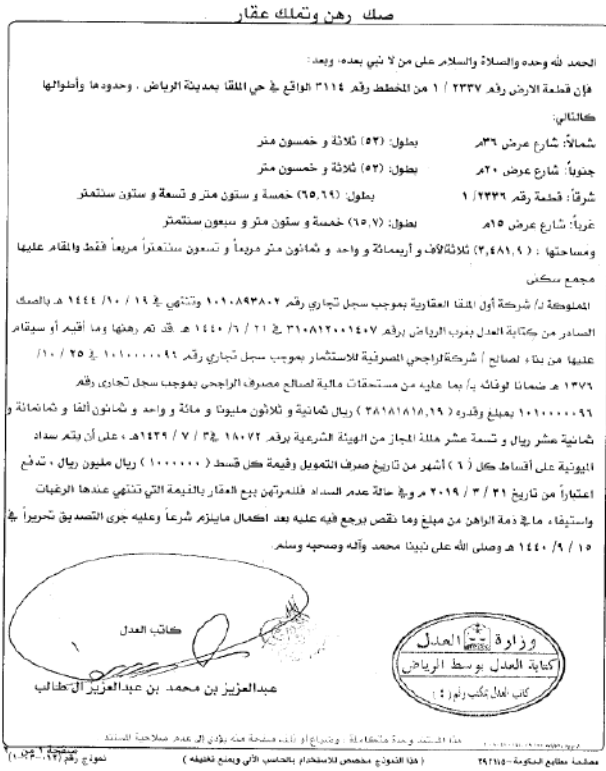 صك رهن وتملك عقار
الحمد لله وحده والصلاة والسلام على من لا نبي بعده، وبعد:
فإن قطعة الارض رقم ٢٣٣٧ / ١ من المخطط رقم ٣١١٤ الواقع في حي الملقا بمدينة الرياض . وحدودها وأطوالها
كالتالي:
شمالاً: شارع عرض ٣٦م بطول: (٥٣) ثلاثة و خمسون متر
جنوباً: شارع عرض ٢٠م بطول: (٥٣) ثلاثة و خمسون متر
شرقاً: قطعة رقم ٢٣٣٦ / ١ بطول: (٦٥,٦٩) خمسة و ستون متر و تسعة و ستون سنتمتر
غرباً: شارع عرض ١٥م بطول: (٦٥,٧) خمسة و ستون متر و سبعون سنتمتر
ومساحتها : (٣,٤٨١,٩) ثلاثةآلاف و أربعمائة و واحد و ثمانون متر مربعاً و تسعون سنتمتراً مربعاً فقط والمقام عليها
مجمع سكني
المملوكة لـ/ شركة أول الملقا العقارية بموجب سجل تجاري رقم ١٠١٠٨٩٣٨٠٢ وتنتهي في ١٩ / ١٠ / ١٤٤٤ هـ بالصك
الصادر من كتابة العدل بغرب الرياض برقم ٣١٠٨١٢٠٠١٤٠٧ في ٢١ / ٦ / ١٤٤٠ هـ قد تم رهنها وما أقيم أو سيقام
عليها من بناء لصالح / شركةالراجحي المصرفية للاستثمار بموجب سجل تجاري رقم ١٠١٠٠٠٠٠٩٦ في ٢٥ / ١٠/
١٣٧٦ هـ ضمانا لوفائه بـ/ بما عليه من مستحقات مالية لصالح مصرف الراجحي بموجب سجل تجاري رقم
١٠١٠٠٠٠٠٩٦ بمبلغ وقدره (٣٨١٨١٨١٨,١٩) ريال ثمانية و ثلاثون مليونا و مائة و واحد و ثمانون ألفا و ثمانمائة و
ثمانية عشر ريال و تسعة عشر هللة المجاز من الهيئة الشرعية برقم ١٨٠٧٢ في٣ / ٧ / ١٤٣٩هـ، على أن يتم سداد
المديونية على أقساط كل (٦) أشهر من تاريخ صرف التمويل وقيمة كل قسط (١٠٠٠٠٠٠) ريال مليون ريال ، تدفع
اعتباراً من تاريخ ٣١ / ٣ / ٢٠١٩ م وفي حالة عدم السداد فللمرتهن بيع العقار بالقيمة التي تنتهي عندها الرغبات
واستيفاء ما في ذمة الراهن من مبلغ وما نقص يرجع فيه عليه بعد اكمال مايلزم شرعاً وعليه جرى التصديق تحريراً في
١٥ / ٩ / ١٤٤٠ هـ وصلى الله على نبينا محمد وآله وصحبه وسلم.
كاتب العدل
عبدالعزيز بن محمد بن عبدالعزيز ال طالب
وزارة العدل
كتابة العدل بوسط الرياض
كاتب العدل بمكتب رقم (٤)
هذا المستند وحدة متكاملة ، وضياع أو تلف صفحة منه يؤدي إلى عدم صلاحية المستند
مصلحة مطابع الحكومة - ٣٩٢١١٥
( هذا النموذج مخصص للاستخدام بالحاسب الآلي ويمنع تغليفه )
صفحة ١ من